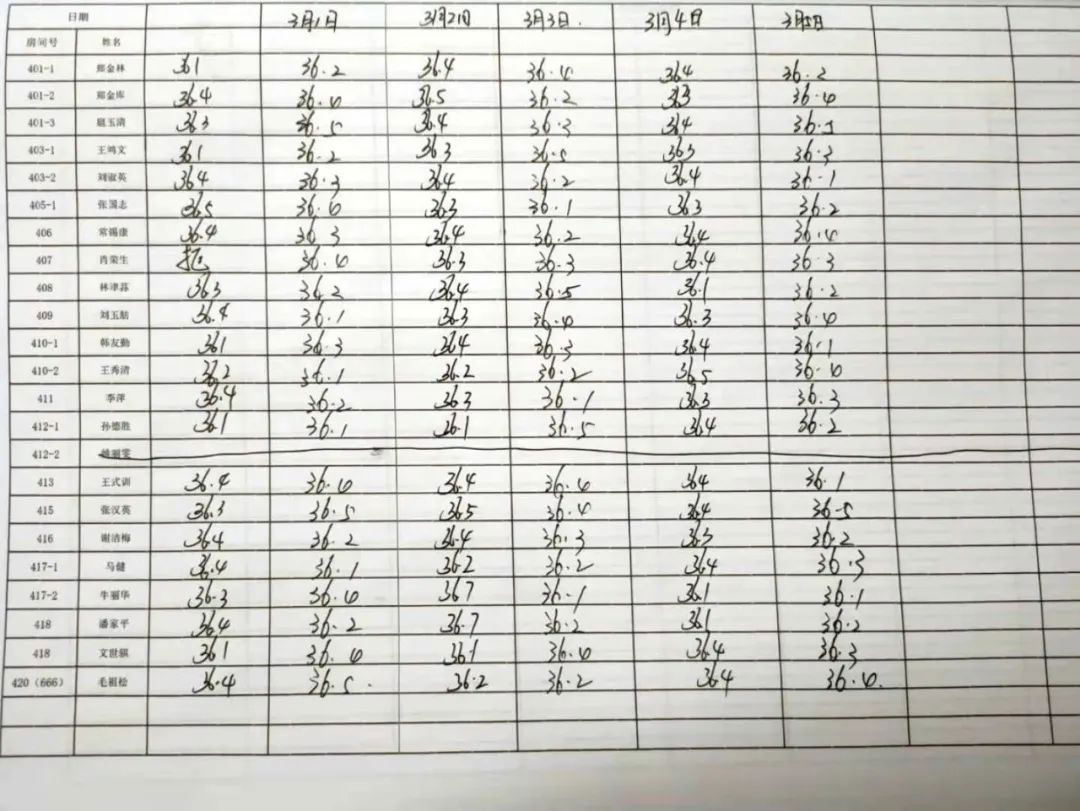 日期 3月1日 3月2日 3月3日. 3月4日 3月5日
房间号 姓名
401-1 郑金林 361 36.2 36.4 36.4 364 36.2
401-2 郑金库 36.4 36.4 36.5 36.2 363 36.4
401-3 扈玉清 363 36.5 36.4 36.3 364 36.5
403-1 王鸿文 361 36.2 363 36.5 363 36.3
403-2 刘淑英 364 36.3 364 36.2 36.4 36.1
405-1 张国志 365 36.4 363 36.1 363 36.2
406 常锡康 36.4 36 3 364 36.2 364 36.4
407 肖荣生 36.4 36.3 36.3 36.4 36.3
408 林津荪 363 36.2 364 36.5 36.1 36.2
409 刘玉舫 36.4 36.1 36.3 36.4 36.3 36.4
410-1 韩友勤 361 36.3 364 36.3 364 36.1
410-2 王秀清 36.2 36.1 36.2 36.2 365 36.4
411 李萍 36.4 36.2 363 36.1 363 36.3
412-1 孙德胜 361 36.1 36.1 36.5 364 36.2
412-2
413 王式训 36.4 36.4 36.4 36.4 364 36.1
415 张汉英 36.3 36.5 365 36.4 364 36.5
416 谢洁梅 364 36.2 36.4 36.3 363 36.2
417-1 马健 36.4 36.1 36.2 36.2 364 36.3
417-2 牛丽华 36.3 36.4 367 36.1 361 36.1
418 潘家平 364 36.2 36.7 36.2 361 36.2
418 文世骐 361 36.4 36.1 36.4 36.4 36.3
420（666） 毛祖松 36.4 36.5. 36.2 36.2 364 36.4.